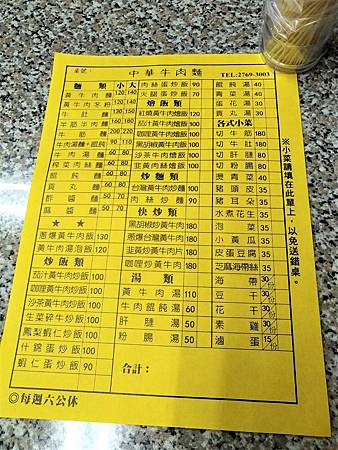 桌號：
中華牛肉麵
TEL:2769-3003
麵類 小 大
黃牛肉麵 120 140
黃牛肉冬粉 120 140
牛肚麵
半筋半肉麵 160 180
牛筋麵
牛肉湯麵
牛肉湯麵
榨菜肉絲麵
餛飩麵
貢丸麵
酢醬麵
麻醬麵
★ ★
蔥爆牛肉飯 130
黃牛肉湯泡飯 120
炒飯類
茄汁黃牛肉炒飯 100
咖哩黃牛肉炒飯 100
沙茶黃牛肉炒飯 100
生菜碎牛炒飯 100
鳳梨蝦仁炒飯 100
什錦蛋炒飯 100
蝦仁蛋炒飯 90
肉絲蛋炒飯 90
火腿蛋炒飯
燴飯類
紅燒黃牛肉燴飯 100
茄汁黃牛肉燴飯 100
咖哩黃牛肉燴飯 100
黑胡椒黃牛肉燴飯 100
沙茶牛肉燴飯 100
韭黃肉絲燴飯 100
炒麵類
台灣黃牛肉炒麵 100
肉絲炒麵 90
快炒類
黑胡椒炒黃牛肉 180
蔥爆台灣黃牛肉 180
韭黃炒黃牛肉片 180
咖哩炒黃牛肉 180
湯類
黃牛肉湯 110
牛肉餛飩湯 60
肝腱湯 50
粉腸湯 50
合計：
餛飩湯 40
青菜湯 40
蛋花湯 30
貢丸湯 30
各式小菜
切牛筋 180
切牛肚 180
切肝腱 80
切粉腸 80
燙青菜 40
豬頭皮 35
豬耳朵 35
水煮花生 35
泡菜 35
小黃瓜 35
皮蛋豆腐 35
芝麻海帶絲 35
海帶 30/份
豆干 30/份
花干 30/份
素雞 30/份
滷蛋 15/份
※小菜請填在此單上，以免送錯桌。
◎每週六公休